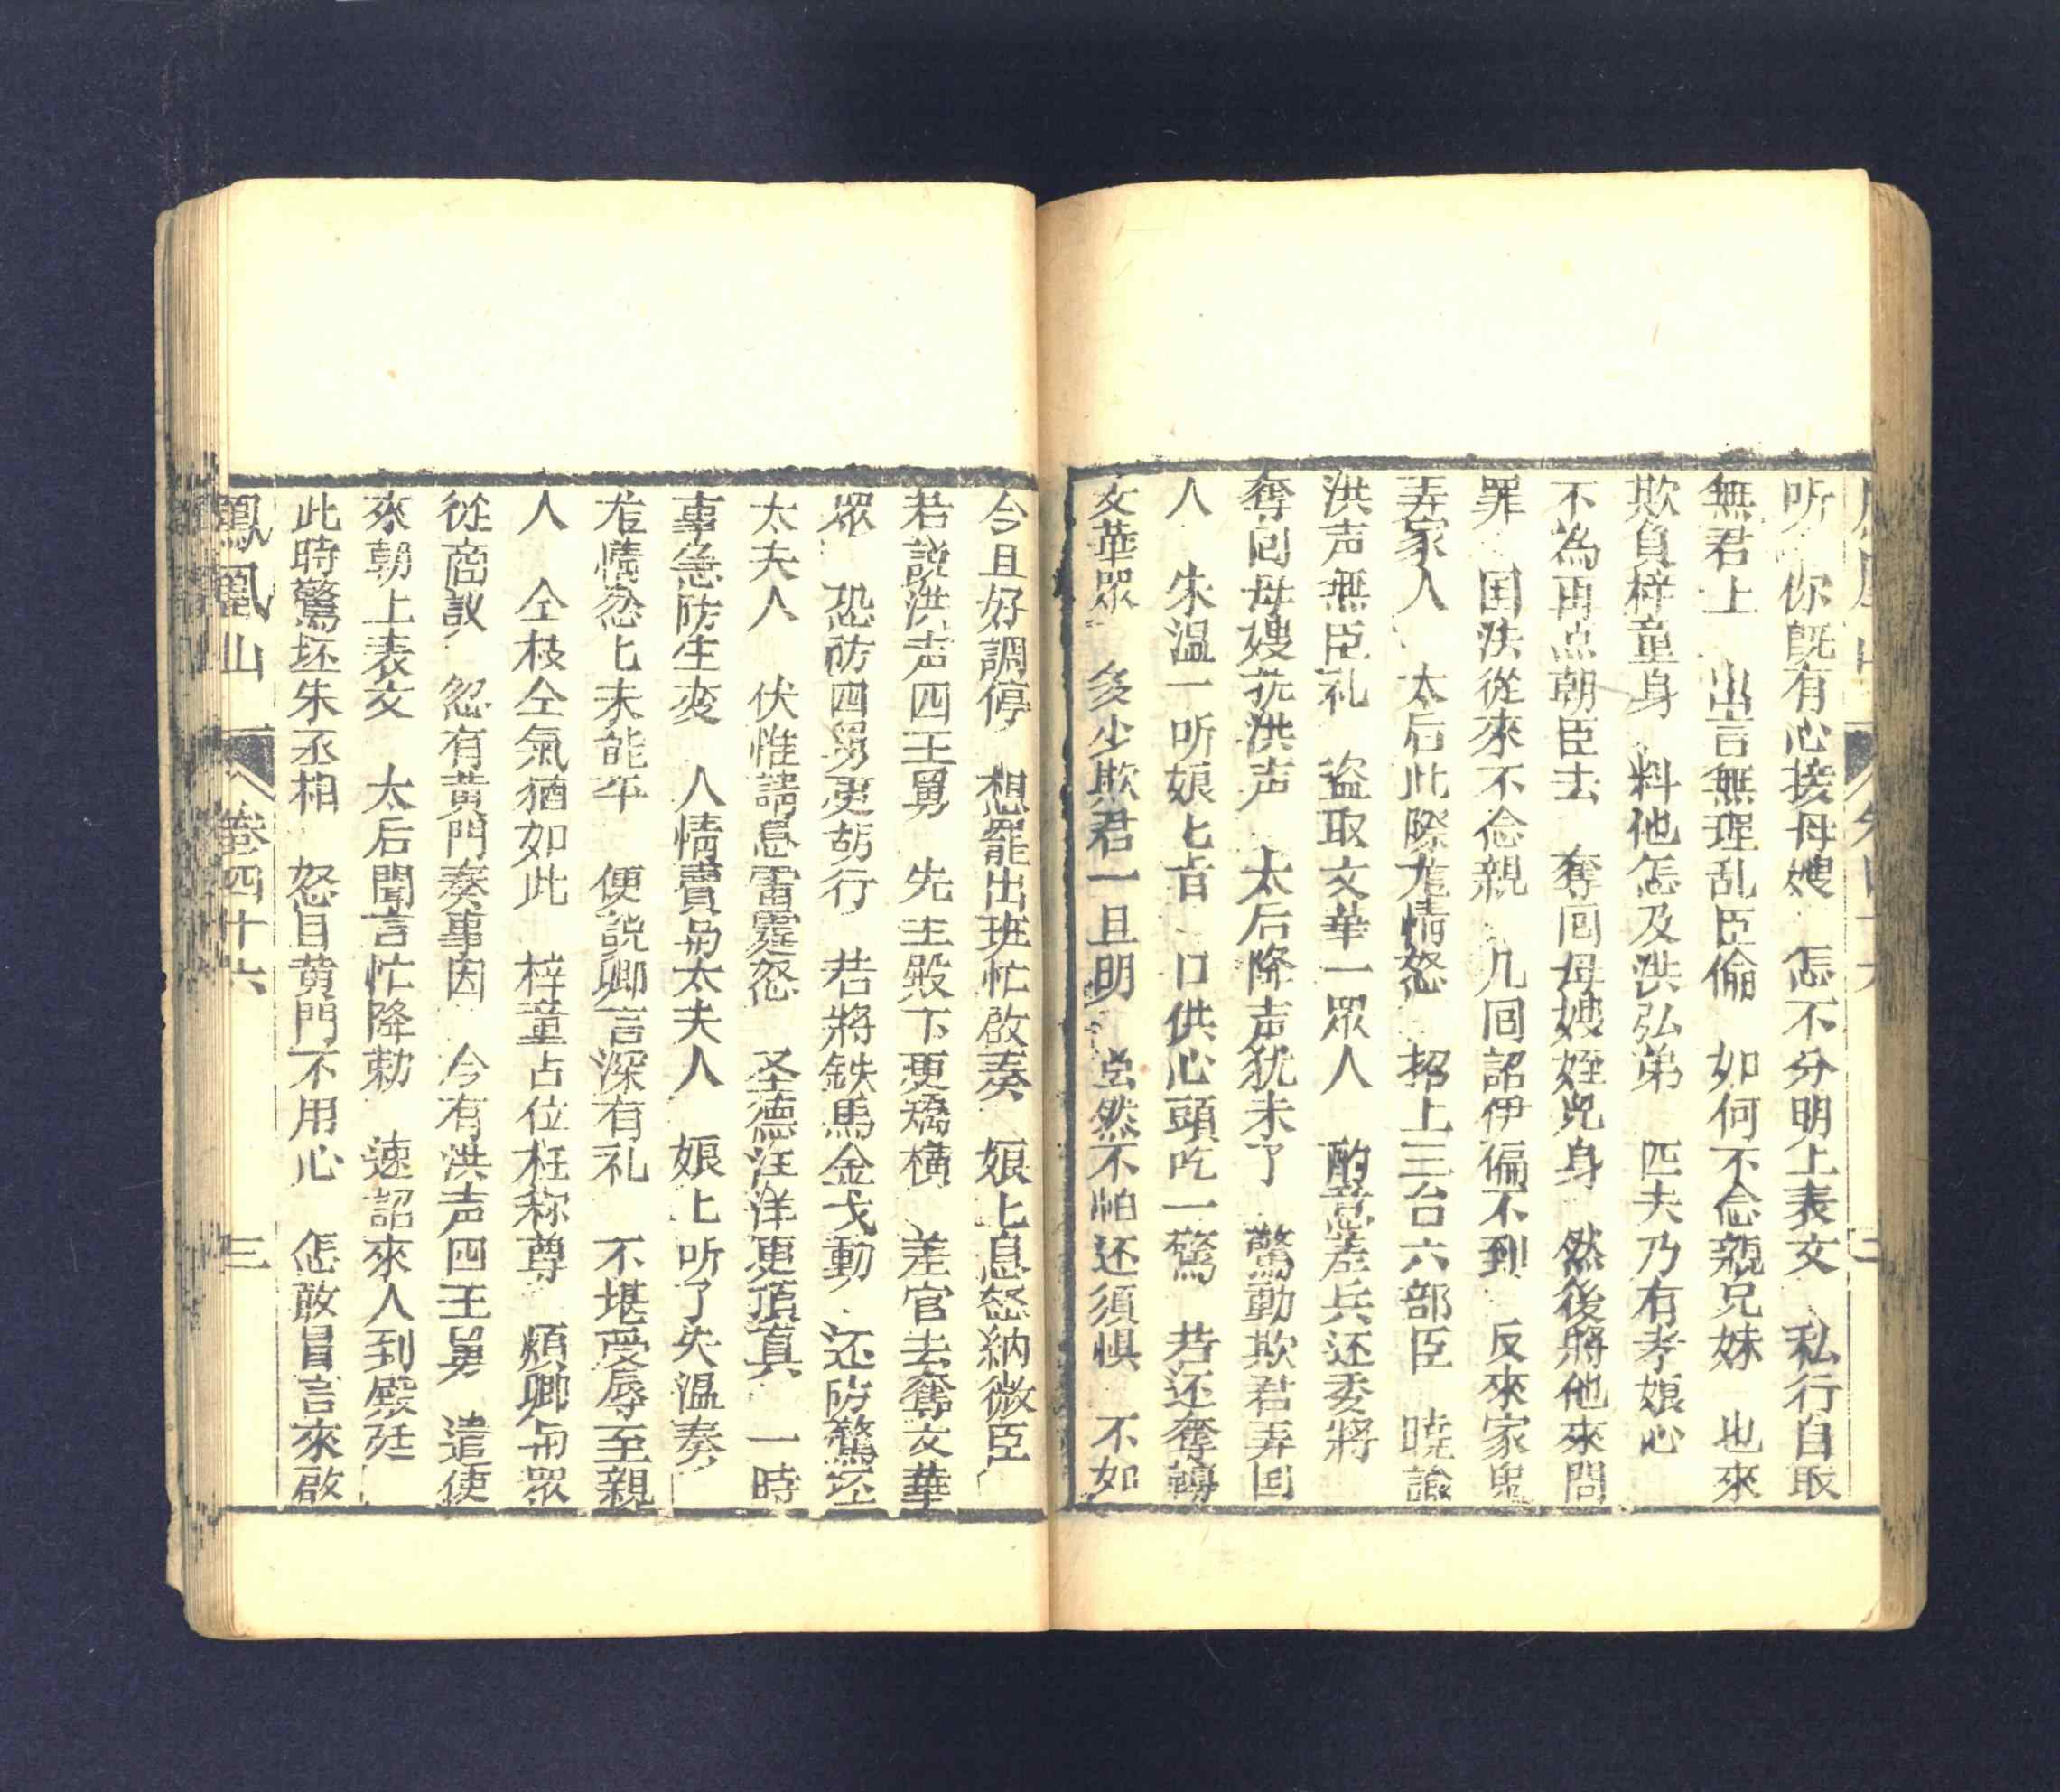 听 你既有心接母嫂 怎不分明上表文 私行自取
無君上 出言無理乱臣倫 如何不念親兄妹 也來
欺負梓童身 料他怎及洪弘弟 匹夫乃有孝娘心
不為再点朝臣去 奪囘母嫂姪児身 然後將他來問
罪 国法從來不念親 几囘詔伊偏不到 反來家鬼
弄家人 太后此際龙情怒 招上三台六部臣 曉諭
洪声無臣礼 盗取文華一眾人 酌意差兵还委將
奪囘母嫂并洪声 太后降声犹未了 驚動欺君弄国
人 朱温一听娘匕旨 口供心頭吃一驚 若还奪轉
文華眾 多少欺君一旦明 虽然不怕还須惧 不如
今且好調停 想罷出班忙啟奏 娘上息怒納微臣
若說洪声四王舅 先主殿下更矯橫 差官去奪文華
眾 恐防四舅更胡行 若將鉄馬金戈動 还防驚坯
太夫人 伏惟請息雷霆怒 圣德汪洋更頂真 一時
事急防生变 人情賣角太夫人 娘上听了失温奏
龙情忿匕未能平 便說卿言深有礼 不堪受辱至親
人 仝枝仝氣猶如此 梓童占位枉称尊 煩卿角眾
從商議 忽有黄門奏事因 今有洪声四王舅 遣使
來朝上表文 太后聞言忙降勅 速詔來人到殿廷
此時驚坯朱丞相 怒目黄門不用心 怎敢冒言來啟
鳳凰山 卷四十六 三